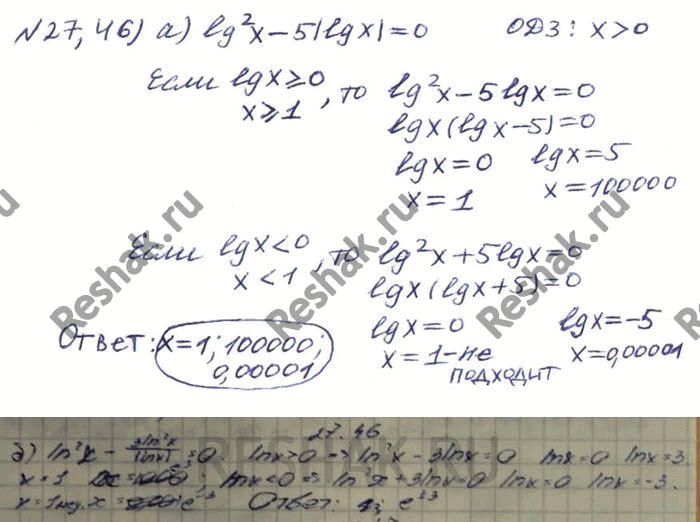 №27,46) а) lg²x – 5|lgx| = 0 ОДЗ: x>0
Если lgx ⩾ 0, то lg²x – 5lgx = 0
x ⩾ 1 lgx(lgx–5) = 0
lgx = 0 lgx = 5
x = 1 x = 100000
Если lgx < 0, то lg²x + 5lgx = 0
x < 1 lgx(lgx+5) = 0
lgx = 0 lgx = –5
x = 1 – не подходит x = 0,00001
Ответ: x = 1; 100000; 0,00001
Reshak.ru
Reshak.ru
Reshak.ru
RESHAK.RU
27.46
б) ln²x – 3ln²x/|lnx| = 0 lnx>0 => ln²x – 3lnx = 0 lnx = 0 lnx = 3;
x = 1 lnx<0 => ln²x + 3lnx = 0 lnx = 0 lnx = –3.
Ответ: